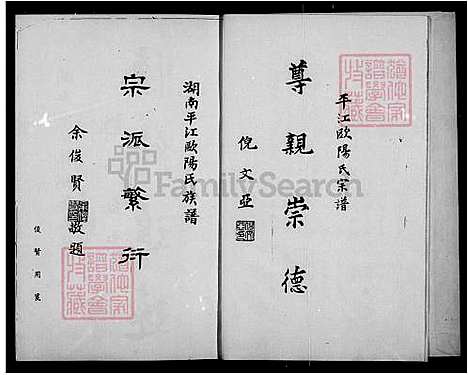 平江歐陽氏宗譜
尊親崇德
倪文亞
湖南平江歐陽氏族譜
宗派繁衍
余俊賢 敬題
俊賢用箋
FamilySearch